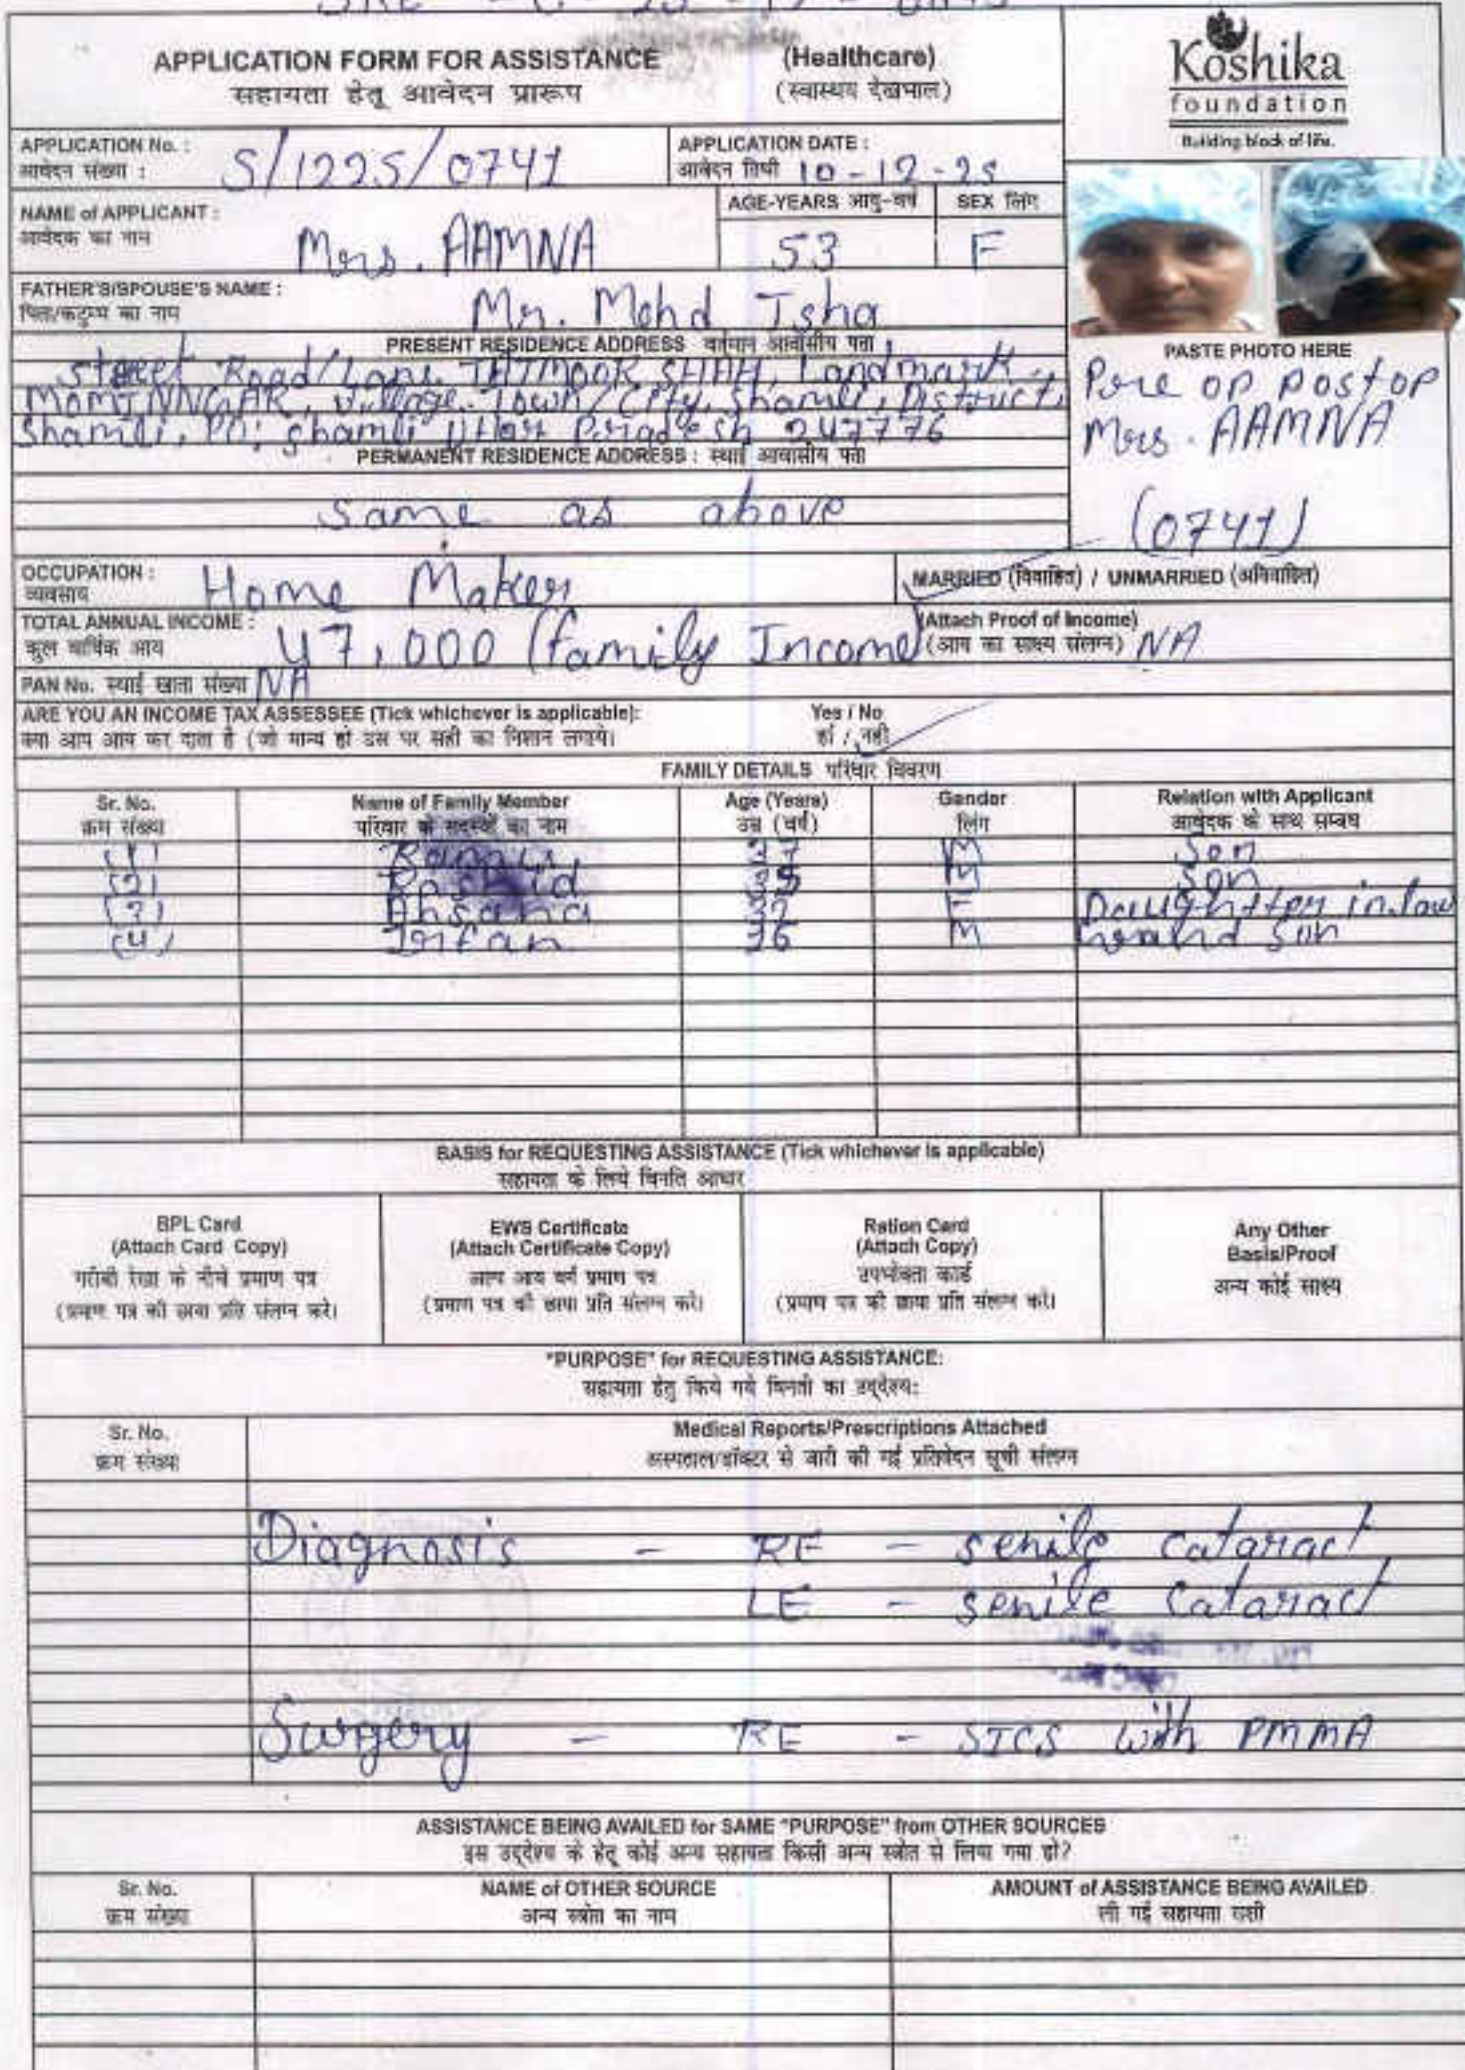 APPLICATION FORM FOR ASSISTANCE (Healthcare)
सहायता हेतू आवेदन प्रारूप (स्वास्थय देखभाल)
Koshika
foundation
Building block of life.
APPLICATION No. : S/1225/0741
आवेदन संख्या :
APPLICATION DATE :
आवेदन तिथी 10-12-25
NAME of APPLICANT :
आवेदक का नाम Mrs. AAMNA
AGE-YEARS आयु-वर्ष 53
SEX लिंग F
FATHER'S/SPOUSE'S NAME :
पिता/कटुम्ब का नाम Mr. Mohd Isha
PRESENT RESIDENCE ADDRESS वर्तमान आवासीय पता
Street Road/Lane, SHAH, Landmark,
Village. Town/City, Shamli, District,
Shamli, PO; Shamli Uttar Pradesh 247776
PERMANENT RESIDENCE ADDRESS : स्थाई आवासीय पता
Same as above
PASTE PHOTO HERE
Pre op post op
Mrs. AAMNA
(0741)
OCCUPATION :
व्यवसाय Home Maker
MARRIED (विवाहित) / UNMARRIED (अविवाहित)
TOTAL ANNUAL INCOME :
कुल वार्षिक आय 47,000 (family Income)
(Attach Proof of Income)
(आय का साक्ष्य संलग्न) NA
PAN No. स्थाई खाता संख्या NA
ARE YOU AN INCOME TAX ASSESSEE (Tick whichever is applicable): Yes / No
क्या आप आय कर दाता है (जो मान्य हो उस पर सही का निशान लगाये। हाँ / नही
FAMILY DETAILS परिवार विवरण
Sr. No. Name of Family Member Age (Years) Gender Relation with Applicant
क्रम संख्या परिवार के सदस्यों का नाम उम्र (वर्ष) लिंग आवेदक के साथ सम्बंध
(1) 37 M Son
(2) Rashid M Son
(3) Ahsana 32 F Daughtter in law
(4) Irfan M Grand Son
BASIS for REQUESTING ASSISTANCE (Tick whichever is applicable)
सहायता के लिये विनति आधार
BPL Card
(Attach Card Copy)
गरीबी रेखा के नीचे प्रमाण पत्र
(प्रमाण पत्र की छाया प्रति संलग्न करे।
EWS Certificate
(Attach Certificate Copy)
अल्प आय वर्ग प्रमाण पत्र
(प्रमाण पत्र की छाया प्रति संलग्न करे।
Ration Card
(Attach Copy)
उपभोक्ता कार्ड
(प्रमाण पत्र की छाया प्रति संलग्न करे।
Any Other
Basis/Proof
अन्य कोई साक्ष्य
"PURPOSE" for REQUESTING ASSISTANCE:
सहायता हेतु किये गये विनती का उद्देश्य:
Sr. No. Medical Reports/Prescriptions Attached
क्रम संख्या अस्पताल/डॉक्टर से जारी की गई प्रतिवेदन सूची संलग्न
Diagnosis - RE - senile cataract
LE - senile cataract
Surgery - RE - SICS with PMMA
ASSISTANCE BEING AVAILED for SAME "PURPOSE" from OTHER SOURCES
इस उद्देश्य के हेतू कोई अन्य सहायता किसी अन्य स्त्रोत से लिया गया हो?
Sr. No. NAME of OTHER SOURCE AMOUNT of ASSISTANCE BEING AVAILED
क्रम संख्या अन्य स्त्रोत का नाम ली गई सहायता राशी